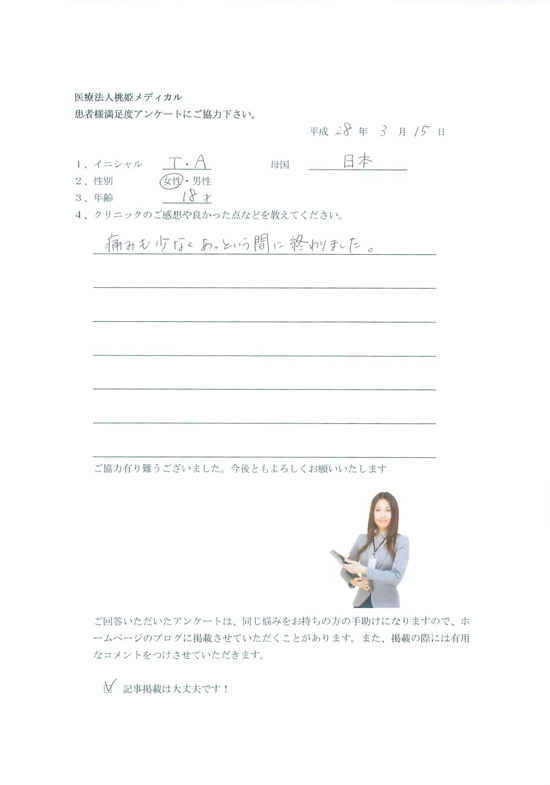 医療法人桃姫メディカル
患者様満足度アンケートにご協力下さい。
平成 28 年 3 月 15 日
1、イニシャル T・A 母国 日本
2、性別 女性・男性
3、年齢 18才
4、クリニックのご感想や良かった点などを教えてください。
痛みも少なくあっという間に終わりました。
ご協力有り難うございました。今後ともよろしくお願いいたします
ご回答いただいたアンケートは、同じ悩みをお持ちの方の手助けになりますので、ホ
ームページのブログに掲載させていただくことがあります。また、掲載の際には有用
なコメントをつけさせていただきます。
☑ 記事掲載は大丈夫です!